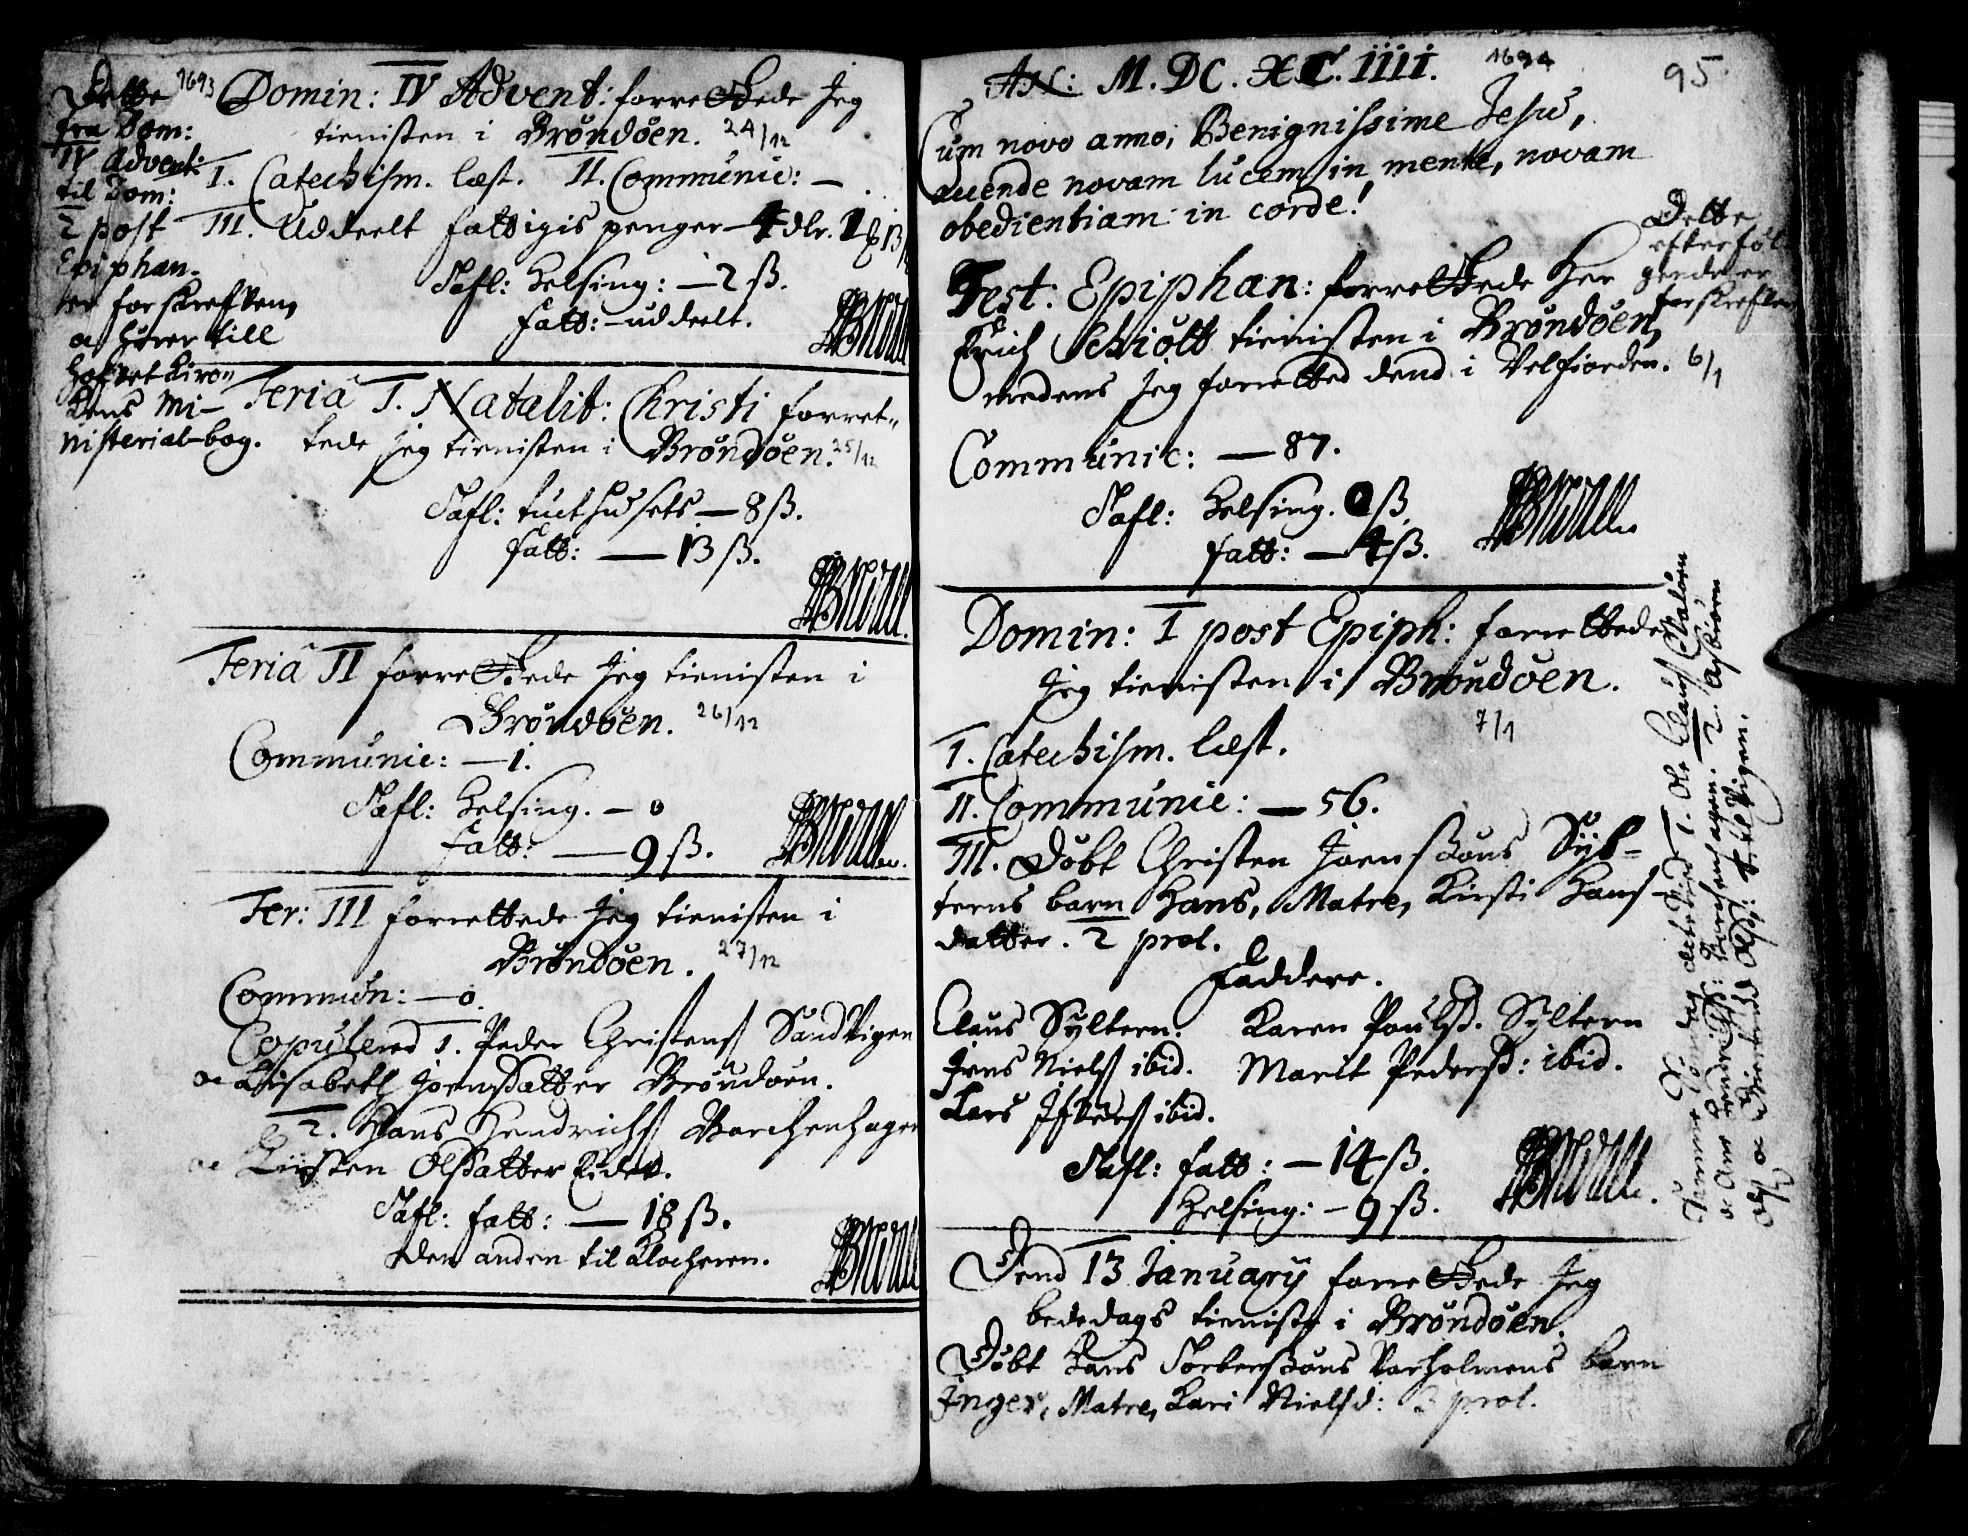 Dette
fra Dom:
IV Advent:
til Dom:
2 post
Epiphan.
er forskrefven,
oc hører till
hofvet kirc„
kens Mi-
nisterial-bog.
1693
Domin: IV Advent: forrettede Jeg
tienisten i Brøndøen. 24/12
I. Catechism. læst. II. Communic: —.
III. Uddeelt fattigis penger — 4 dlr. 1 13
Tafl: Helsing: — 2 ß.
Fatt: — uddeelt.
Feriâ I. Natalit: Christi forret„
tede Jeg tienisten i Brøndøen. 25/12
Tafl: tuct husets — 8 ß.
Fatt: — 13 ß.
Feriâ II forrettede Jeg tienisten i
Brøndøen. 26/12
Communic: — 1.
Tafl: Helsing. — 0
Fatt: — 9 ß.
Fer: III forrettede Jeg tienisten i
Brøndøen. 27/12
Commun: — 0.
Copulered 1. Peder Christens Sandvigen
oc Lisabeth Joensdatter Brøndøen.
2. Hans Hendrichs Borchenhagen
oc Kirsten Olsdatter Eidet.
Tafl: fatt: — 18 ß.
den anden til Klocheren.
AN: M. DC. XC. IIII. 1694
95
Cum novo anno, Benignissime Jesu,
accende novam lucem in mente, novam
obedientiam in corde!
Dette
efterføl
gende er
forskrefven
Fest: Epiphan: forrettede Her
Erich Schiøtt tienisten i Brøndøen,
medens Jeg forretted dend i Velfiorden. 6/1
Communic: — 87.
Tafl: Helsing. 0 ß.
Fatt: — 4 ß.
Domin: I post Epiph: forrettede
Jeg tienisten i Brøndøen.
7/1
I. Catechism. læst.
II. Communic: — 56.
III. Døbt Christen Joenssøns Syl-
terns barn Hans, Matre, Kirsti Hans-
datter. 2 prol.
Faddere.
Claus Syltern. Karen Poulsd. Syltern
Jens Niels ibid. Marit Pedersd: ibid.
Lars Ifvers ibid.
Tafl: fatt: — 14 ß.
Helsing: — 9 ß.
Samme Søndag 1. Ole Claus
Dend 13 January forrettede Jeg
bededags tieniste i Brøndøen.
Døbt Hans Torbenssøns Torholmens barn
Inger, Matre, Kari Nielsd: 3 prol.